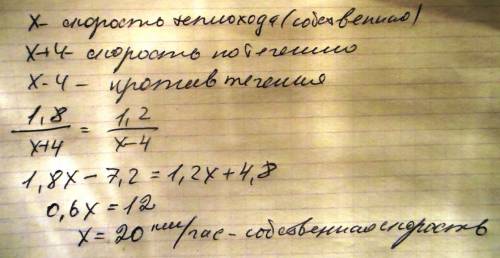 х - скорость теплохода (собственно)
х+4 - скорость по течению
х-4 - против течения
1,8/х+4 = 1,2/х-4
1,8х - 7,2 = 1,2х + 4,8
0,6х = 12
х = 20 км/час - собственная скорость